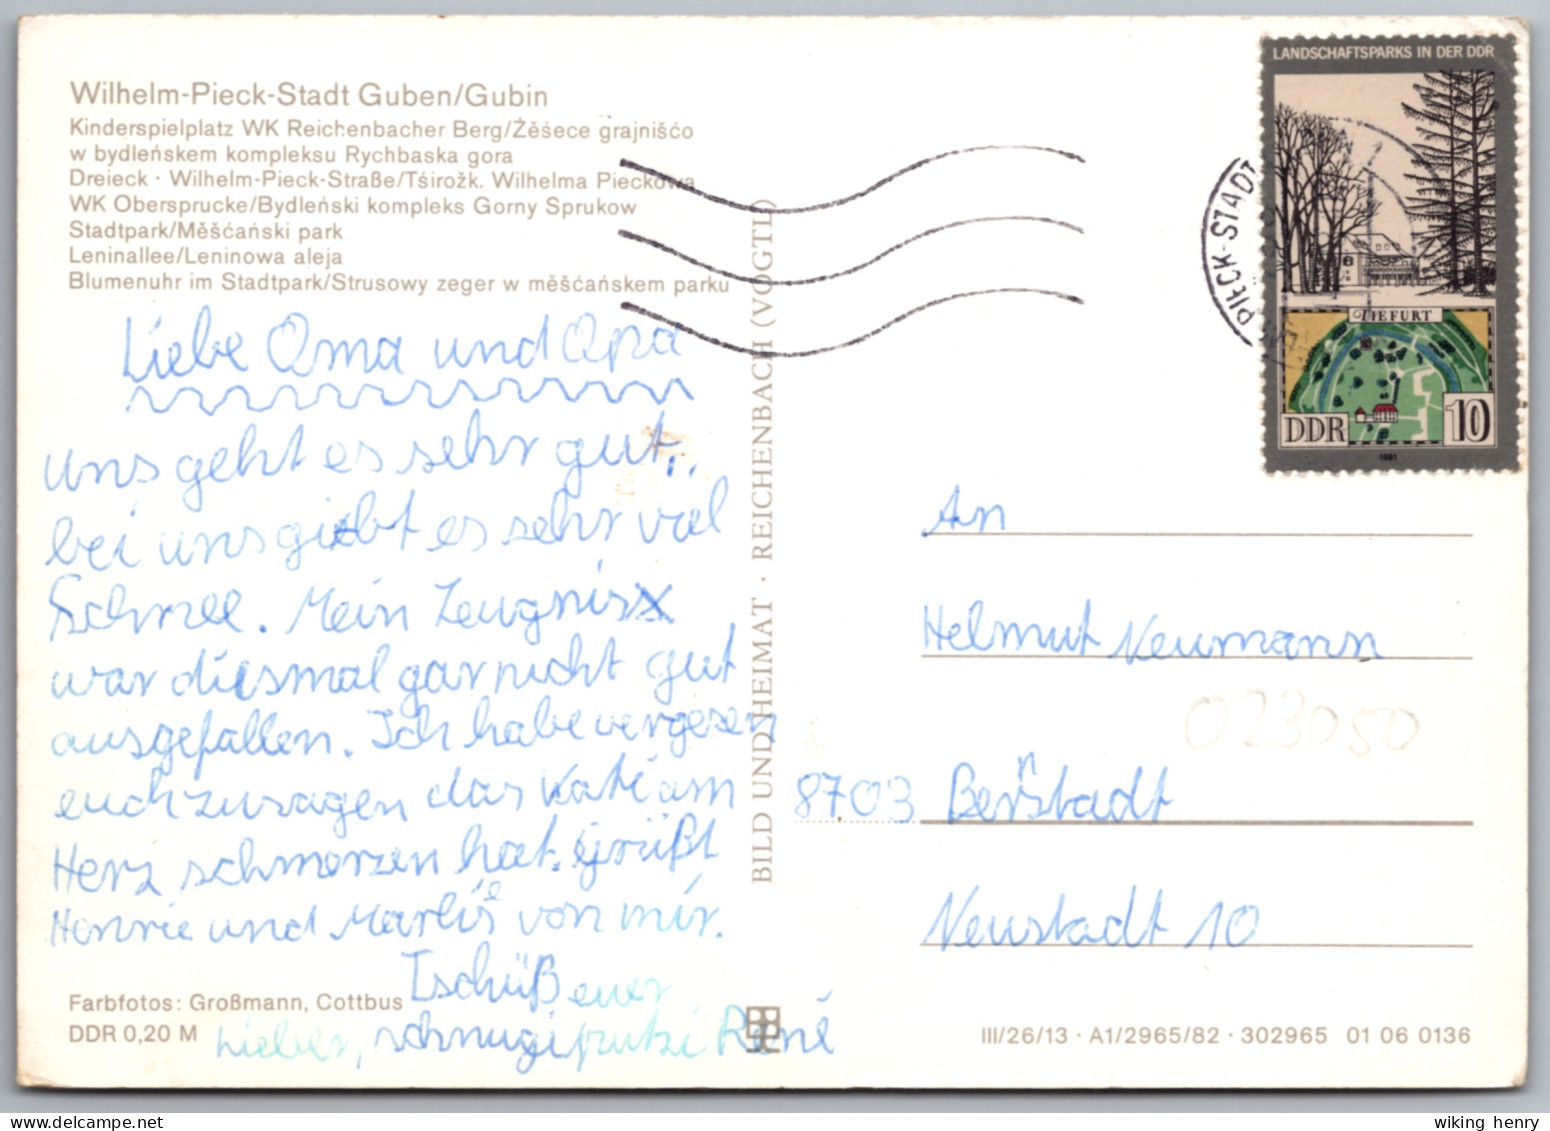 Wilhelm-Pieck-Stadt Guben/Gubin
Kinderspielplatz WK Reichenbacher Berg/Žěsece grajnišćo
w bydleńskem kompleksu Rychbaska gora
Dreieck · Wilhelm-Pieck-Straße/Tśirožk. Wilhelma Pieckowa
WK Obersprucke/Bydleński kompleks Gorny Sprukow
Stadtpark/Měšćański park
Leninallee/Leninowa aleja
Blumenuhr im Stadtpark/Strusowy zeger w měšćańskem parku
Liebe Oma und Opa
uns geht es sehr gut.
bei uns giebt es sehr viel
Schnee. Mein Zeugnis
war diesmal gar nicht gut
ausgefallen. Ich habe vergesen
euch zu sagen das Kati am
Herz schmerzen hat. Grüßt
Henrie und Marlis von mir.
Tschüß euer
Lieber, schnugi putzi René
Farbfotos: Großmann, Cottbus
DDR 0,20 M
BILD UND HEIMAT · REICHENBACH (VOGTL)
PIECK-STADT
LANDSCHAFTSPARKS IN DER DDR
TIEFURT
DDR 10
1981
An
Helmut Neumann
023050
8703 Bernstadt
Neustadt 10
III/26/13 · A1/2965/82 · 302965 01 06 0136
wiking henry